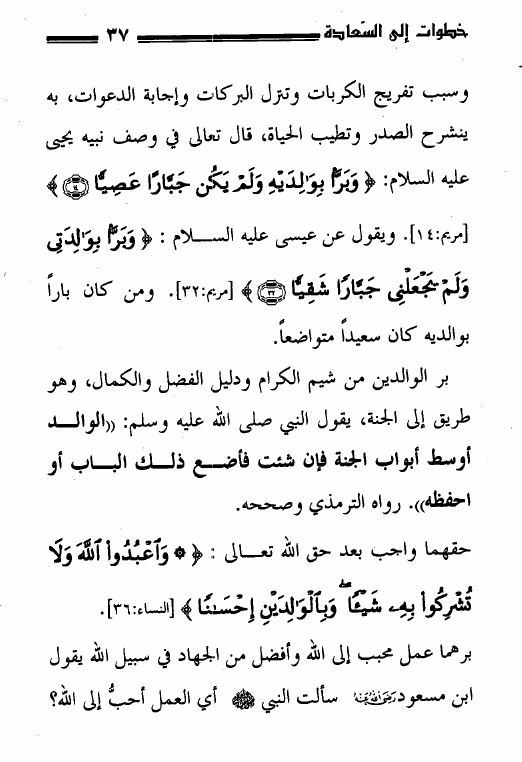 خطوات إلى السعادة ٣٧
وسبب تفريج الكربات وتنزل البركات وإجابة الدعوات، به
ينشرح الصدر وتطيب الحياة، قال تعالى في وصف نبيه يحيى
عليه السلام: ﴿ وَبَرًّۢا بِوَٰلِدَيۡهِ وَلَمۡ يَكُن جَبَّارًا عَصِيّٗا ١٤ ﴾
[مريم:١٤]. ويقول عن عيسى عليه الســلام : ﴿ وَبَرًّۢا بِوَٰلِدَتِي
وَلَمۡ يَجۡعَلۡنِي جَبَّارٗا شَقِيّٗا ٣٢ ﴾ [مريم:٣٢]. ومن كان باراً
بوالديه كان سعيداً متواضعاً.
بر الوالدين من شيم الكرام ودليل الفضل والكمال، وهو
طريق إلى الجنة، يقول النبي صلى الله عليه وسلم: ((الوالــد
أوسط أبواب الجنة فإن شئت فأضــع ذلــك البــاب أو
احفظه)). رواه الترمذي وصححه.
حقهما واجب بعد حق الله تعــالى : ﴿ ۞ وَٱعۡبُدُواْ ٱللَّهَ وَلَا
تُشۡرِكُواْ بِهِۦ شَيۡـٔٗاۖ وَبِٱلۡوَٰلِدَيۡنِ إِحۡسَٰنٗا ﴾ [النساء:٣٦].
برهما عمل محبب إلى الله وأفضل من الجهاد في سبيل الله يقول
ابن مسعود رضي الله عنه سألت النبي ﷺ أي العمل أحبُّ إلى الله؟